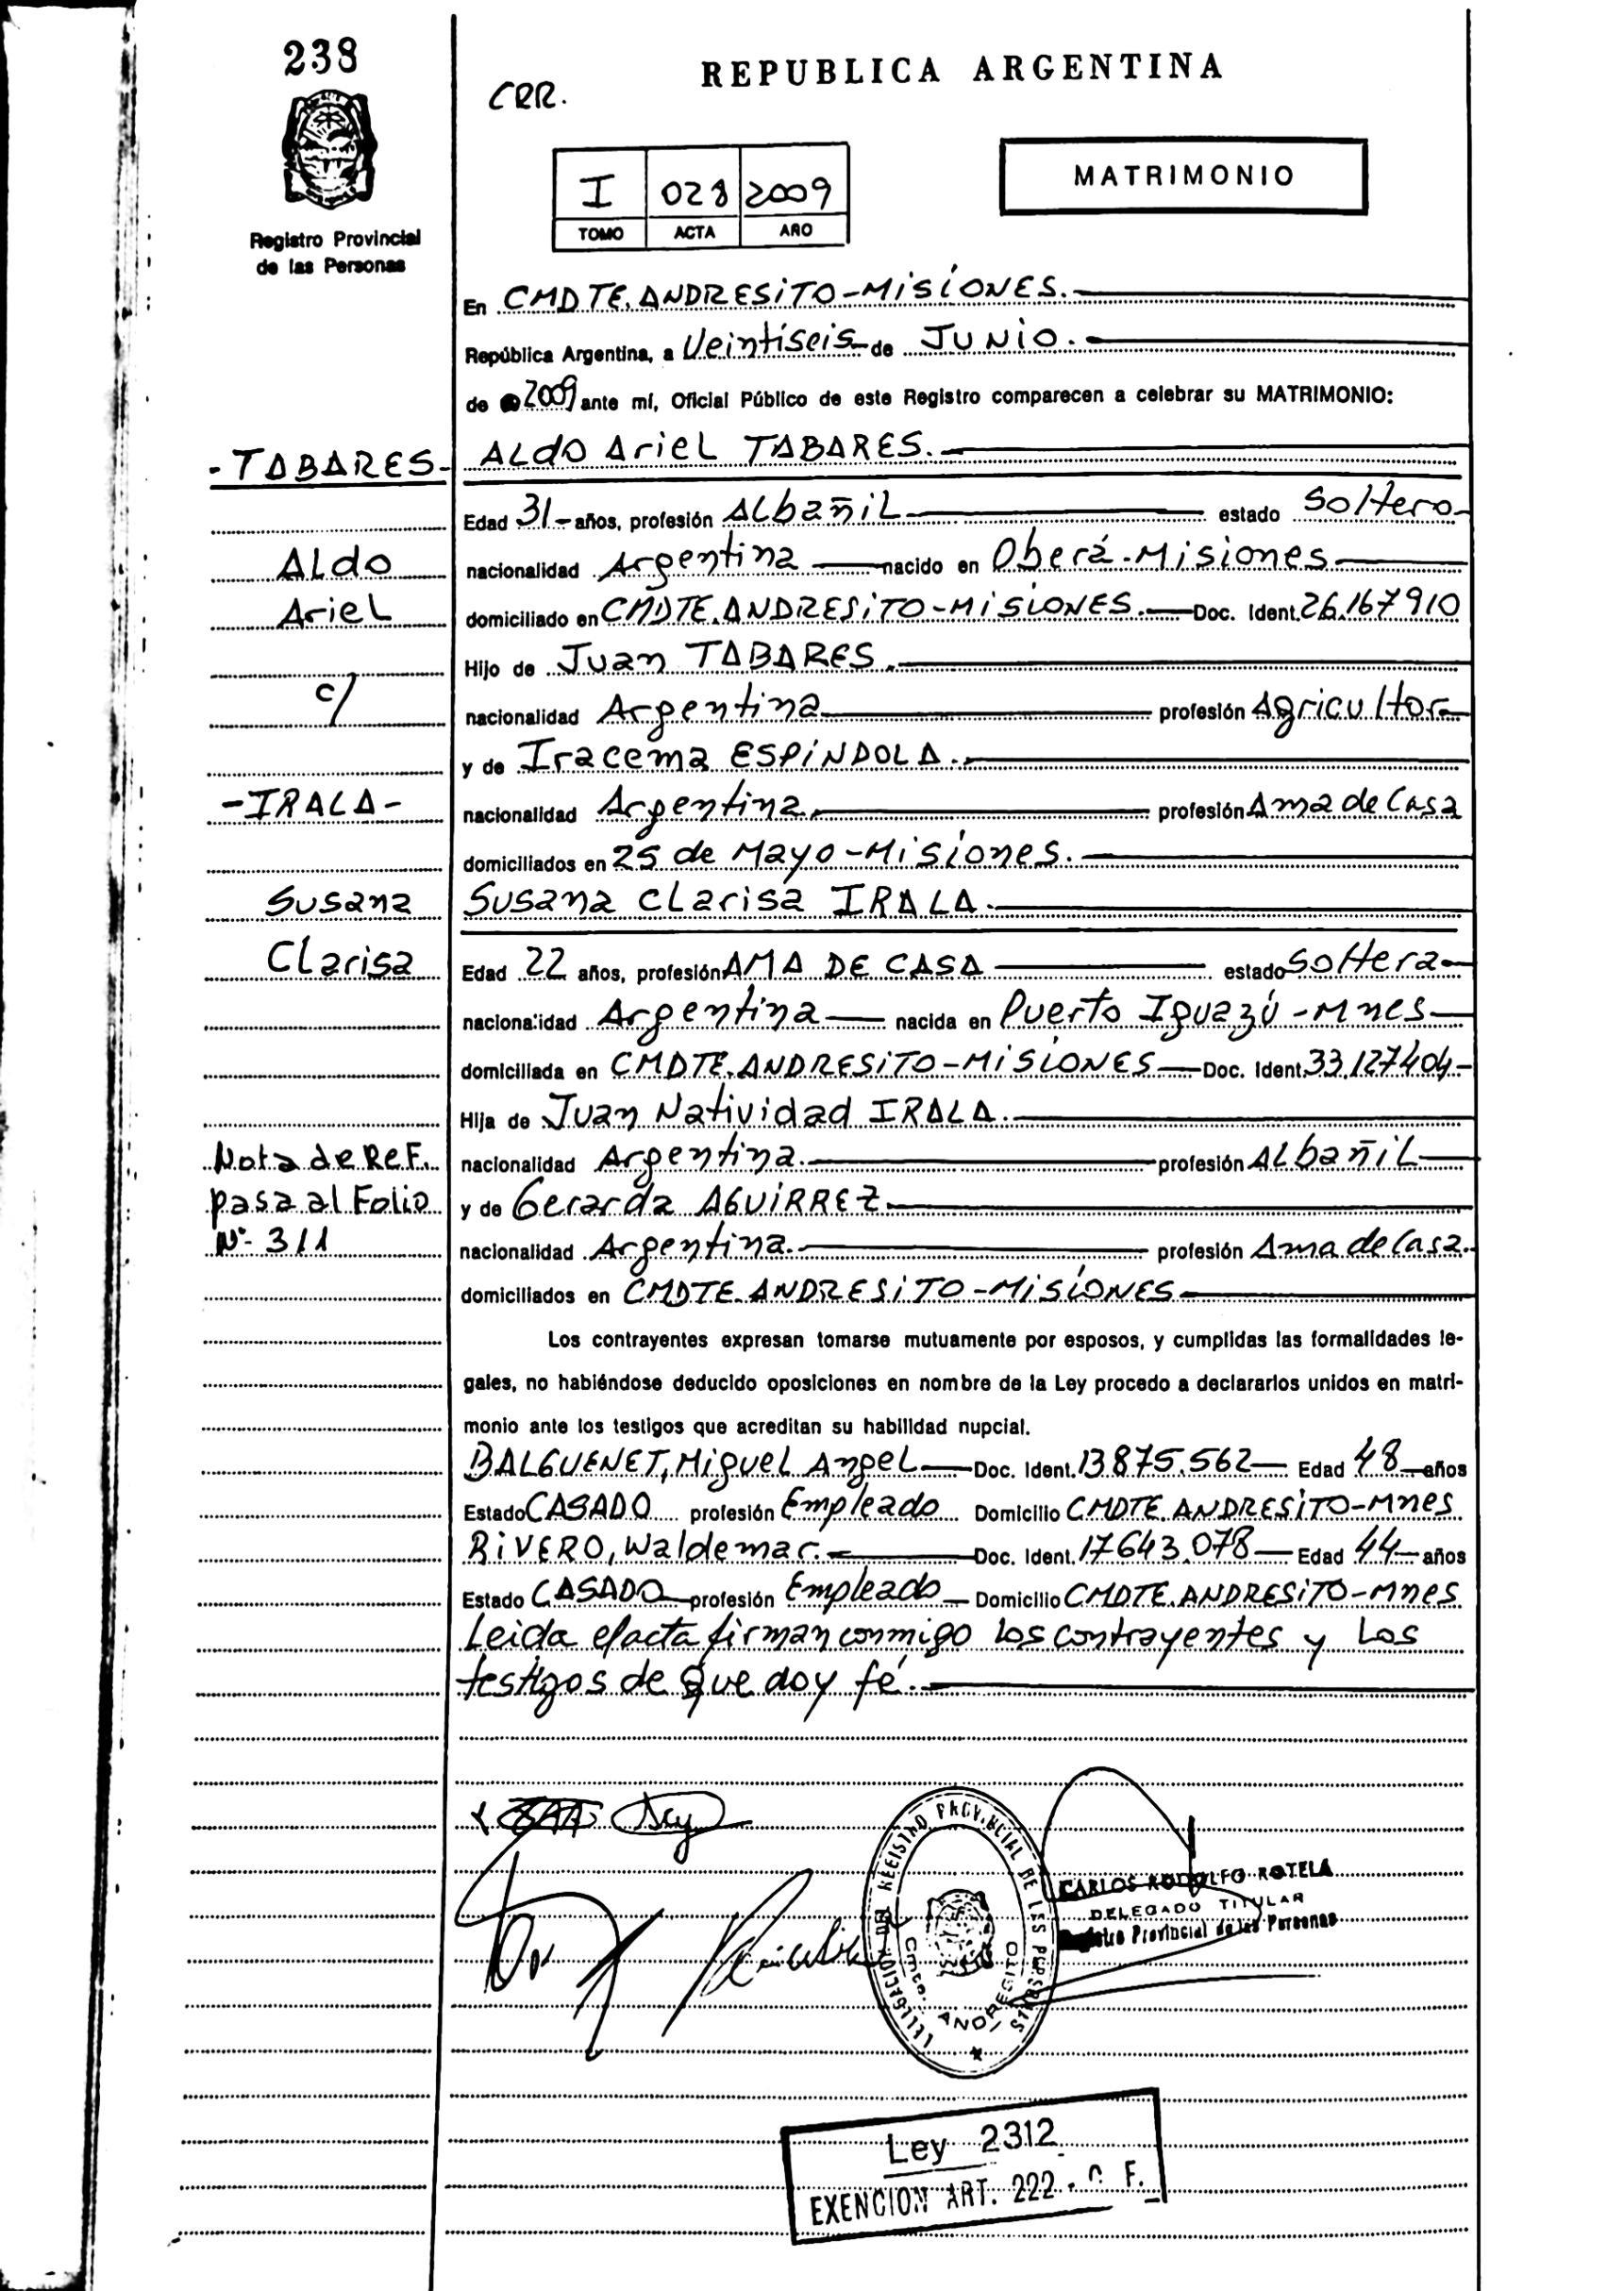 238
REPUBLICA ARGENTINA
CRR.
MATRIMONIO
I 028 2009
TOMO ACTA AÑO
Registro Provincial
de las Personas
En CMDTE. ANDRESITO-MISIONES.
República Argentina, a Veintiseis de JUNIO.
de 2009 ante mí, Oficial Público de este Registro comparecen a celebrar su MATRIMONIO:
-TABARES- ALdo Ariel TABARES.
Edad 31 años, profesión ALbañiL estado Soltero
Aldo nacionalidad Argentina nacido en Oberá-Misiones
Ariel domiciliado en CMDTE. ANDRESITO-MISIONES. Doc. Ident. 26.167910
Hijo de Juan TABARES.
c/ nacionalidad Argentina profesión Agricultor
y de Iracema ESPINDOLA.
-IRALA- nacionalidad Argentina profesión Ama de Casa
domiciliados en 25 de Mayo-Misiones.
Susana Susana Clarisa IRALA.
Clarisa Edad 22 años, profesión AMA DE CASA estado Soltera
nacionalidad Argentina nacida en Puerto Iguazú-Mnes
domiciliada en CMDTE. ANDRESITO-MISIONES Doc. Ident. 33.127404-
Hija de Juan Natividad IRALA.
Nota de Ref. nacionalidad Argentina. profesión ALbañiL
pasa al Folio y de Gerarda AGUIRREZ
Nº- 311 nacionalidad Argentina. profesión Ama de Casa.
domiciliados en CMDTE. ANDRESITO-MISIONES
Los contrayentes expresan tomarse mutuamente por esposos, y cumplidas las formalidades le-
gales, no habiéndose deducido oposiciones en nombre de la Ley procedo a declararlos unidos en matri-
monio ante los testigos que acreditan su habilidad nupcial.
BALGUENET, Miguel Angel Doc. Ident. 13875.562 Edad 48 años
Estado CASADO profesión Empleado Domicilio CMDTE. ANDRESITO-Mnes
RIVERO, Waldemar. Doc. Ident. 17643.078 Edad 44 años
Estado CASADO profesión Empleado Domicilio CMDTE. ANDRESITO-Mnes
Leida el acta firman conmigo los contrayentes y los
testigos de que doy fé.
DELEGACION DEL REGISTRO PROVINCIAL DE LAS PERSONAS
Cmte. ANDRESITO
CARLOS RODOLFO ROTELA
DELEGADO TITULAR
Registro Provincial de las Personas
Ley 2312
EXENCION ART. 222 - F.